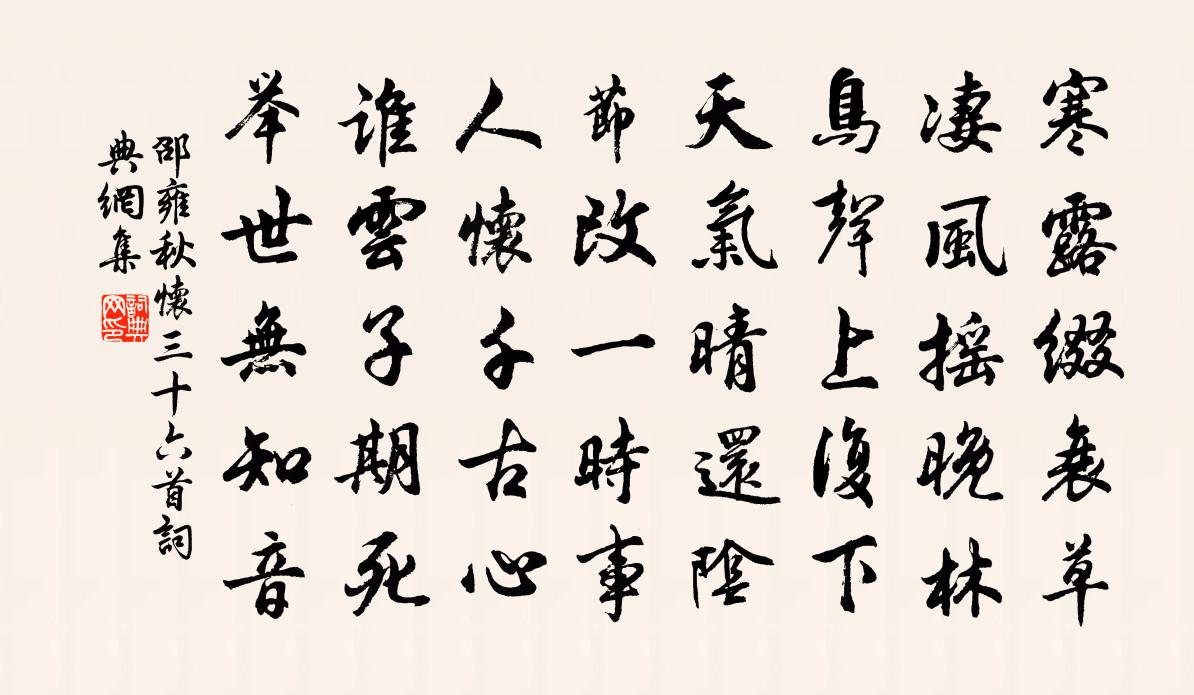 寒露綴衰草
凄風摇晚林
鳥聲上復下
天氣晴還陰
節改一時事
人懷千古心
誰雲子期死
举世無知音
邵雍秋懷三十六首詞
典網集
詞典
网印